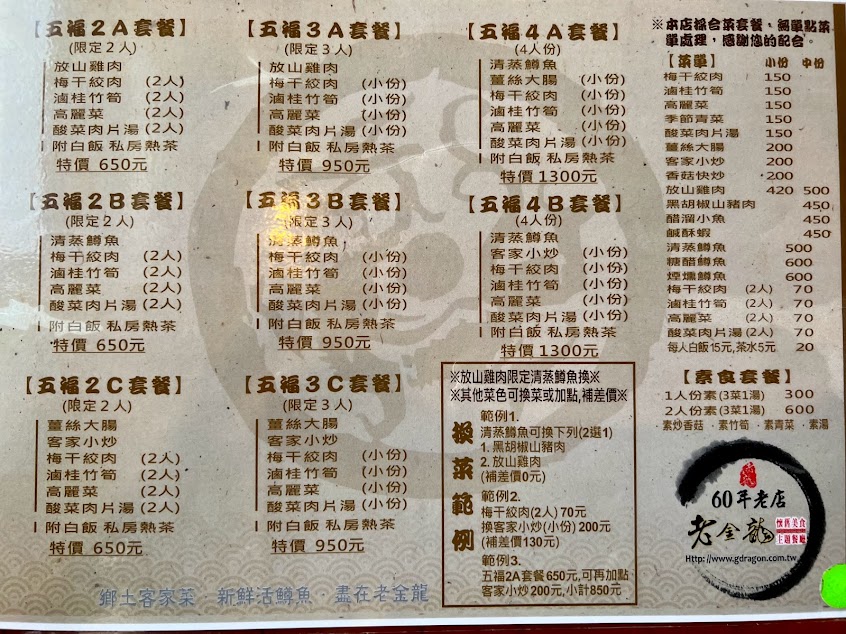 【五福2A套餐】
(限定2人)
放山雞肉
梅干絞肉 (2人)
滷桂竹筍 (2人)
高麗菜 (2人)
酸菜肉片湯 (2人)
附白飯 私房熱茶
特價 650元
【五福3A套餐】
(限定3人)
放山雞肉
梅干絞肉 (小份)
滷桂竹筍 (小份)
高麗菜 (小份)
酸菜肉片湯 (小份)
附白飯 私房熱茶
特價 950元
【五福4A套餐】
(4人份)
清蒸鱒魚
薑絲大腸 (小份)
梅干絞肉 (小份)
滷桂竹筍 (小份)
高麗菜 (小份)
酸菜肉片湯 (小份)
附白飯 私房熱茶
特價 1300元
【五福2B套餐】
(限定2人)
清蒸鱒魚
梅干絞肉 (2人)
滷桂竹筍 (2人)
高麗菜 (2人)
酸菜肉片湯 (2人)
附白飯 私房熱茶
特價 650元
【五福3B套餐】
(限定3人)
清蒸鱒魚
梅干絞肉 (小份)
滷桂竹筍 (小份)
高麗菜 (小份)
酸菜肉片湯 (小份)
附白飯 私房熱茶
特價 950元
【五福4B套餐】
(4人份)
清蒸鱒魚
客家小炒 (小份)
梅干絞肉 (小份)
滷桂竹筍 (小份)
高麗菜 (小份)
酸菜肉片湯 (小份)
附白飯 私房熱茶
特價 1300元
【五福2C套餐】
(限定2人)
薑絲大腸
客家小炒
梅干絞肉 (2人)
滷桂竹筍 (2人)
高麗菜 (2人)
酸菜肉片湯 (2人)
附白飯 私房熱茶
特價 650元
【五福3C套餐】
(限定3人)
薑絲大腸
客家小炒
梅干絞肉 (小份)
滷桂竹筍 (小份)
高麗菜 (小份)
酸菜肉片湯 (小份)
附白飯 私房熱茶
特價 950元
※放山雞肉限定清蒸鱒魚換※
※其他菜色可換菜或加點,補差價※
換菜範例
範例1.
清蒸鱒魚可換下列(2選1)
1. 黑胡椒山豬肉
2. 放山雞肉
(補差價0元)
範例2.
梅干絞肉(2人) 70元
換客家小炒(小份) 200元
(補差價130元)
範例3.
五福2A套餐650元,可再加點
客家小炒200元,小計850元
※本店採合菜套餐、無單點菜
單處理，感謝您的配合。
【菜單】 小份 中份
梅干絞肉 150
滷桂竹筍 150
高麗菜 150
季節青菜 150
酸菜肉片湯 150
薑絲大腸 200
客家小炒 200
香菇快炒 200
放山雞肉 420 500
黑胡椒山豬肉 450
醋溜小魚 450
鹹酥蝦 450
清蒸鱒魚 500
糖醋鱒魚 600
煙燻鱒魚 600
梅干絞肉 (2人) 70
滷桂竹筍 (2人) 70
高麗菜 (2人) 70
酸菜肉片湯 (2人) 70
每人白飯15元,茶水5元 20
【素食套餐】
1人份素(3菜1湯) 300
2人份素(3菜1湯) 600
素炒香菇 ·素竹筍 ·素青菜 ·素湯
60年老店
老金龍
懷舊美食
主題餐廳
Http://www.gdragon.com.tw
鄉土客家菜 · 新鮮活鱒魚 · 盡在老金龍